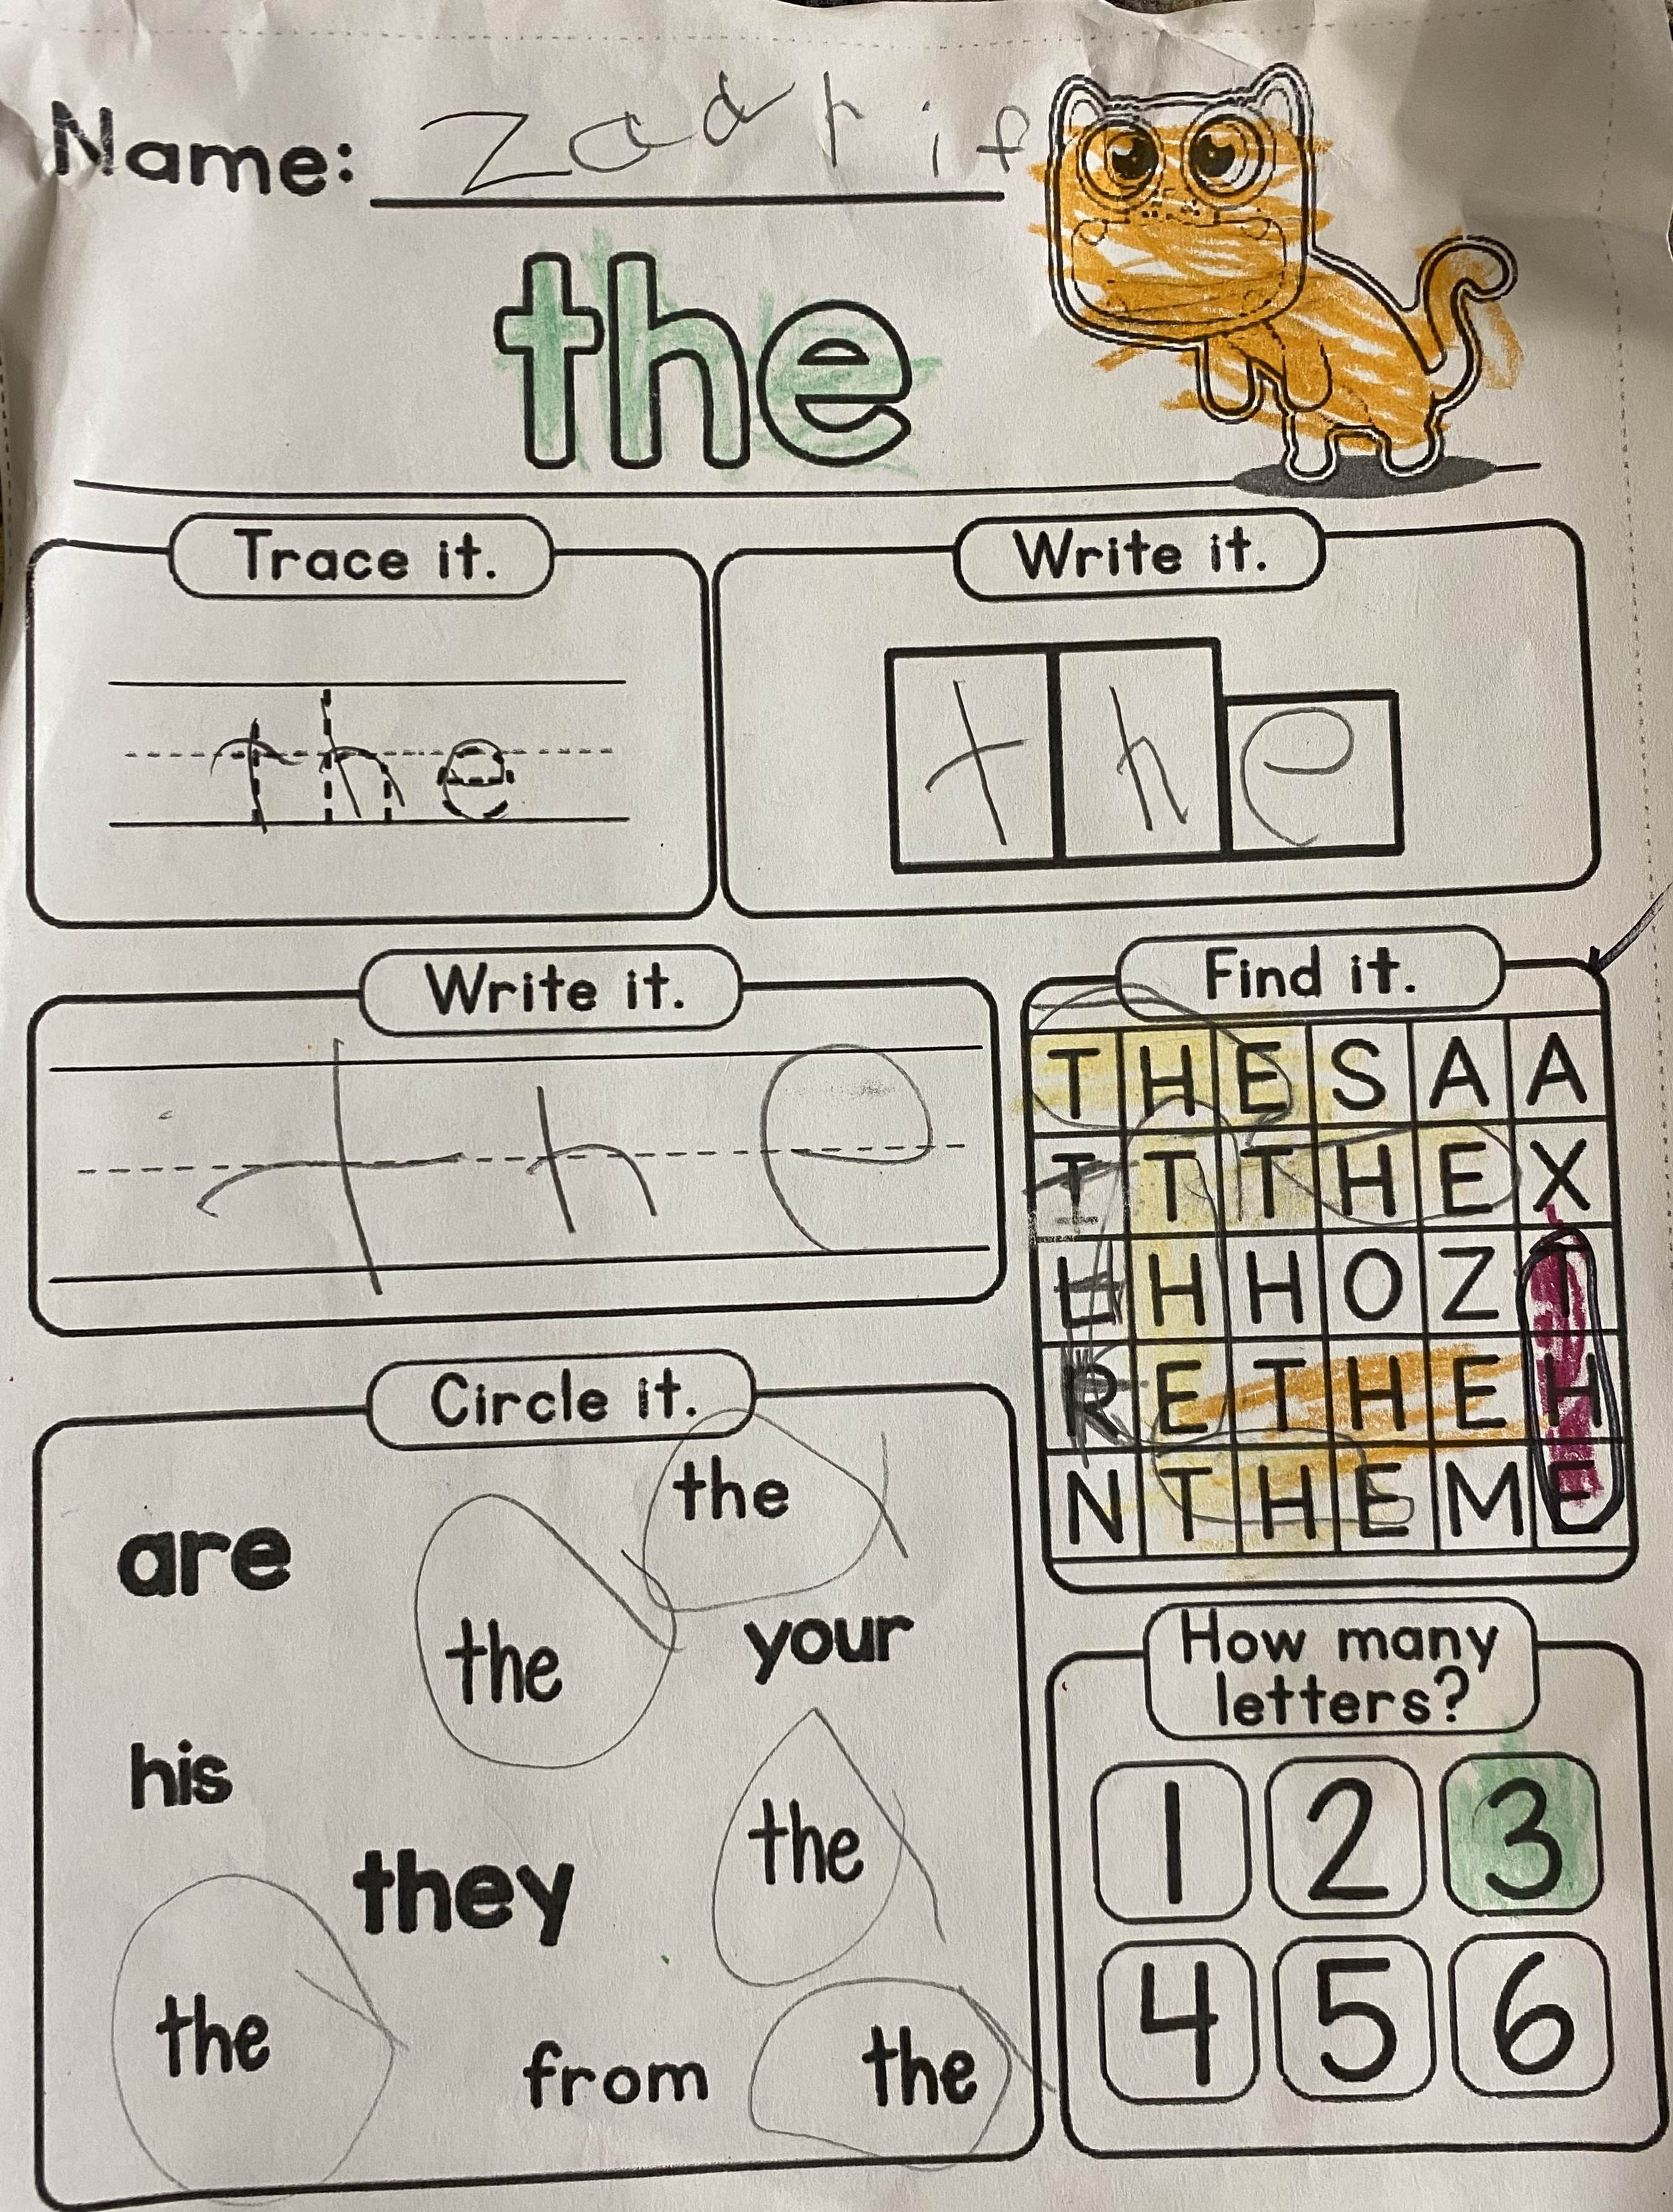 Name:
the
Trace it.
the
Write it.
the
Write it.
the
Find it.
T H E S A A
T T T H E X
L H H O Z T
R E T H E H
N T H E M E
Circle it.
the
are
the
your
his
the
they
the
from
the
How many
letters?
1 2 3
4 5 6